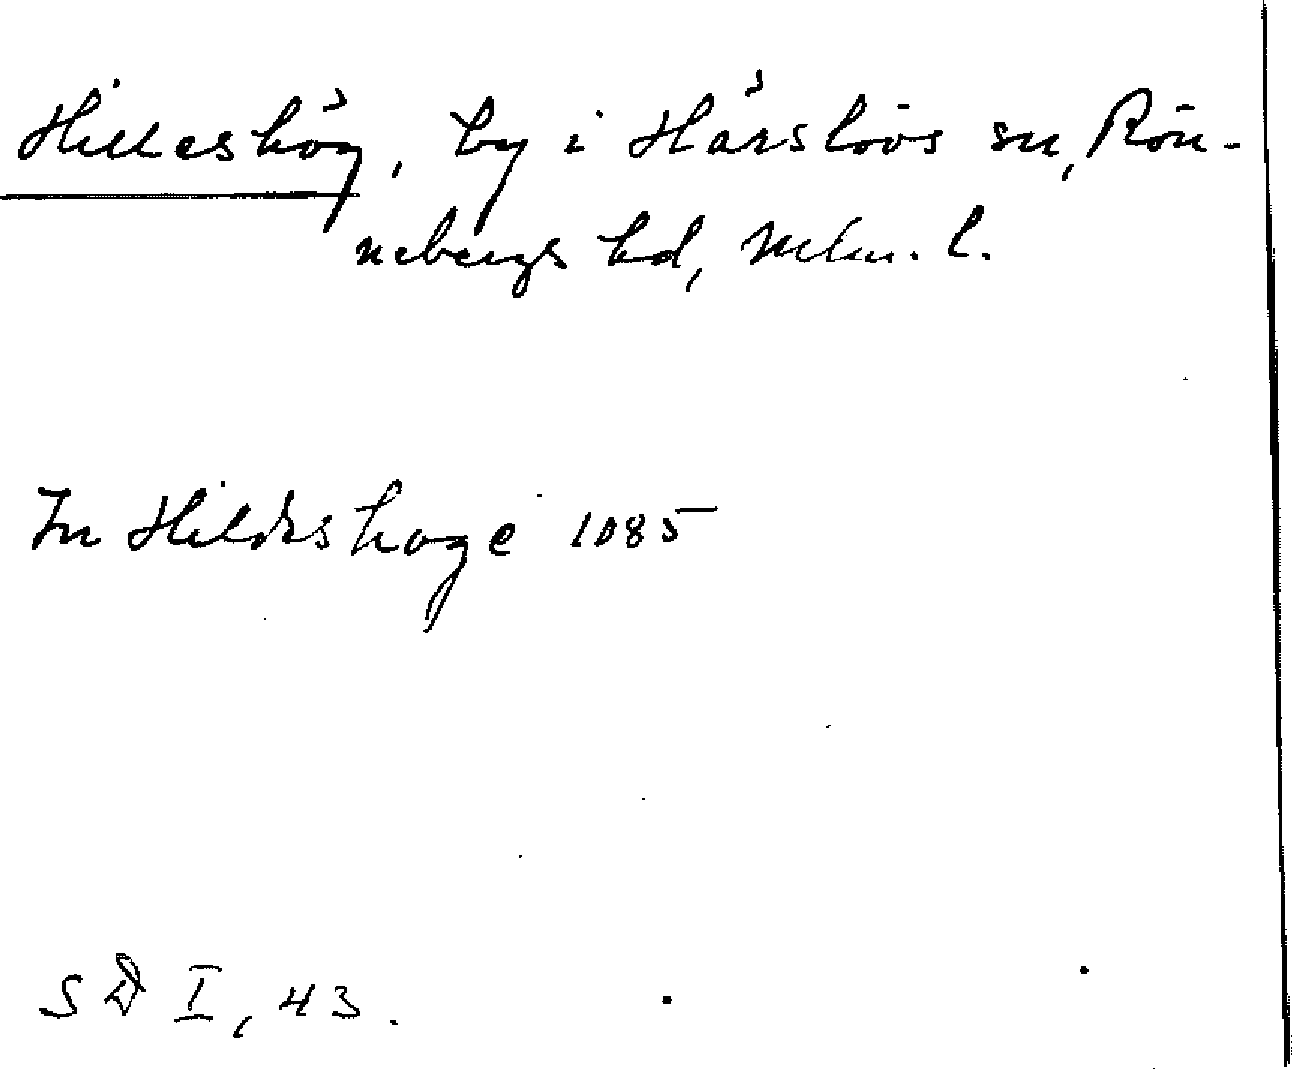 Hilleshög, by i Härslövs sn, Rön-
nebergs hd, Mlm. l.
In Hildishoge 1085
SD I, 43.